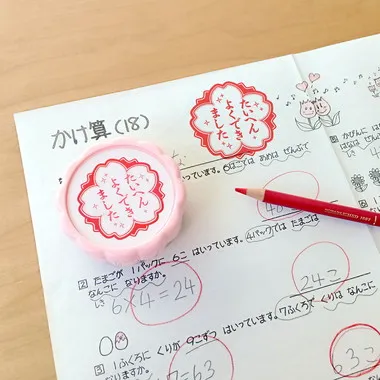 かけ算(18)
たいへん
よくでき
ました
たいへん
よくでき
ました
6はこでは あめは ぜんぶで
はいっています。
かびんに
はなは ぜんぶ
2 たまごが 1パックに 6こ はいっています。4パックでは たまごは
なんこに なりますか。
6×4=24
24こ
3 1ふくろに くりが 9こずつ はいっています。7ふくろで くりは なんこに
なりますか。
=63
63こ